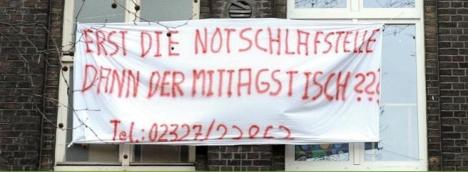 ERST DIE NOTSCHLAFSTELLE
DANN DER MITTAGSTISCH???
Tel.: